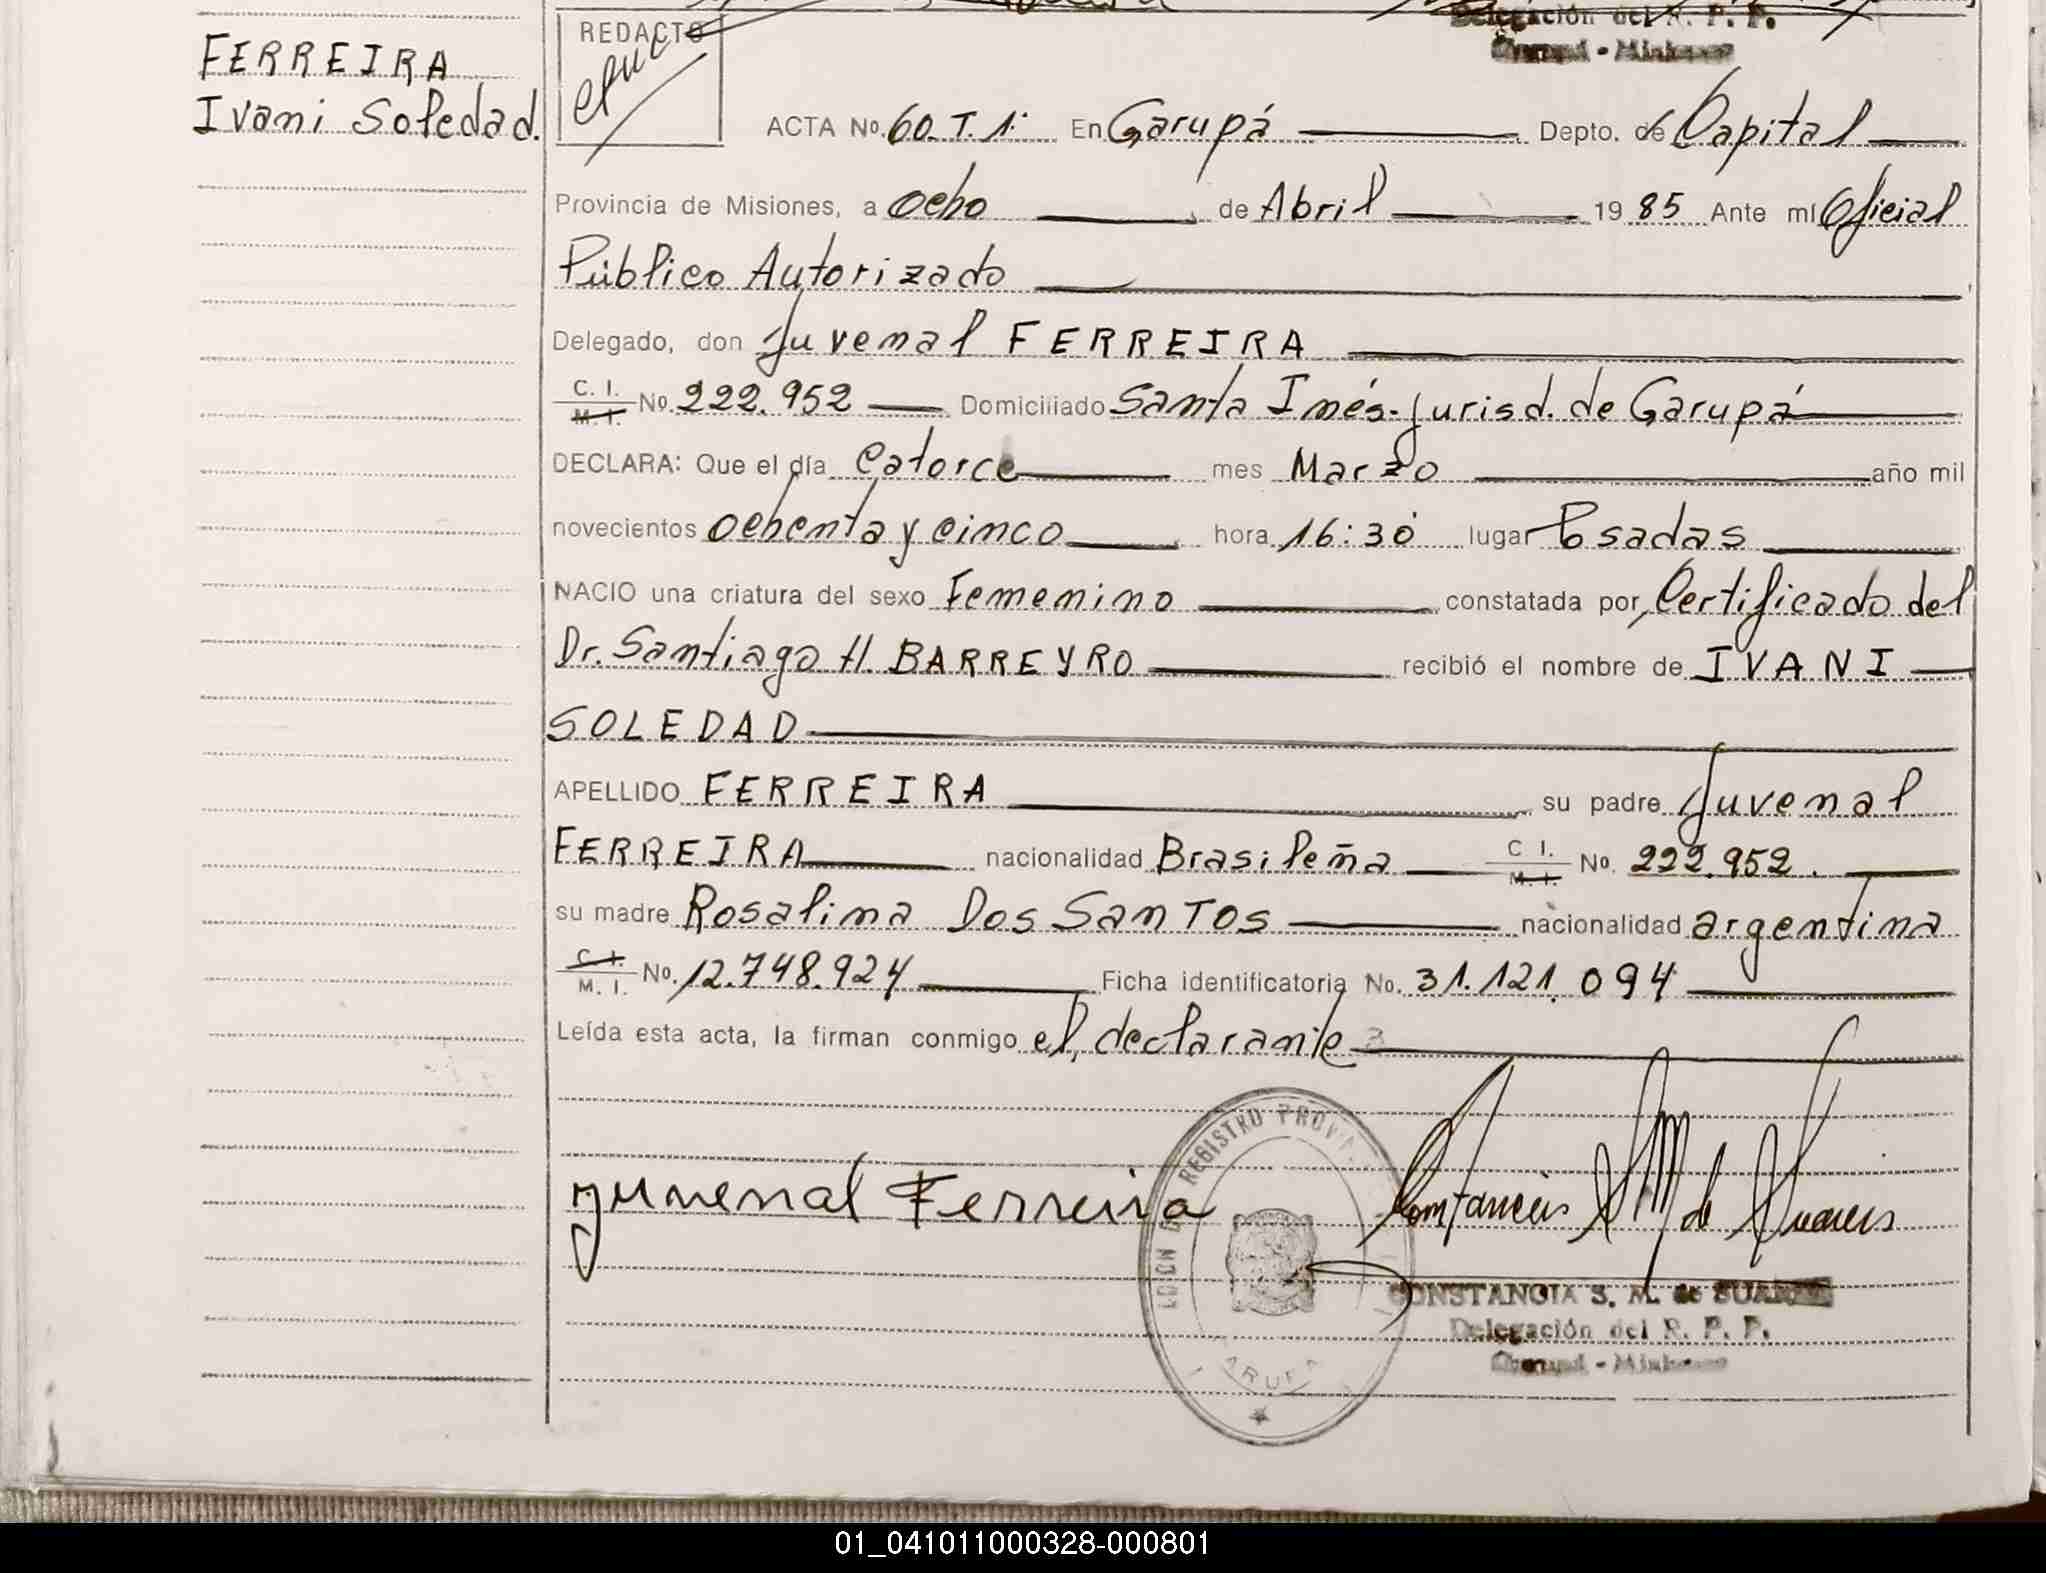 Delegación del R. P. P.
FERREIRA
Ivani Soledad.
REDACTO
ACTA No. 60. T. 1: En Garupá Depto. de Capital
Provincia de Misiones, a ocho de Abril 19 85 Ante mí Oficial
Público Autorizado
Delegado, don Juvenal FERREIRA
C. I. M. I. No. 222.952 Domiciliado Santa Inés-Jurisd. de Garupá
DECLARA: Que el día catorce mes Marzo año mil
novecientos ochenta y cinco hora 16:30 lugar Posadas
NACIO una criatura del sexo Femenino constatada por, Certificado del
Dr. Santiago H. BARREYRO recibió el nombre de IVANI
SOLEDAD
APELLIDO FERREIRA su padre Juvenal
FERREIRA nacionalidad Brasileña C I. M. I. No. 222.952.
su madre Rosalina Dos Santos nacionalidad argentina
C. I. M. I. No. 12.748.924 Ficha identificatoria No. 31.121.094
Leída esta acta, la firman conmigo el, declarante
REGISTRO
Juvenal Ferreira
CONSTANCIA S. M. de SUAREZ
Delegación del R. P. P.
01_041011000328-000801